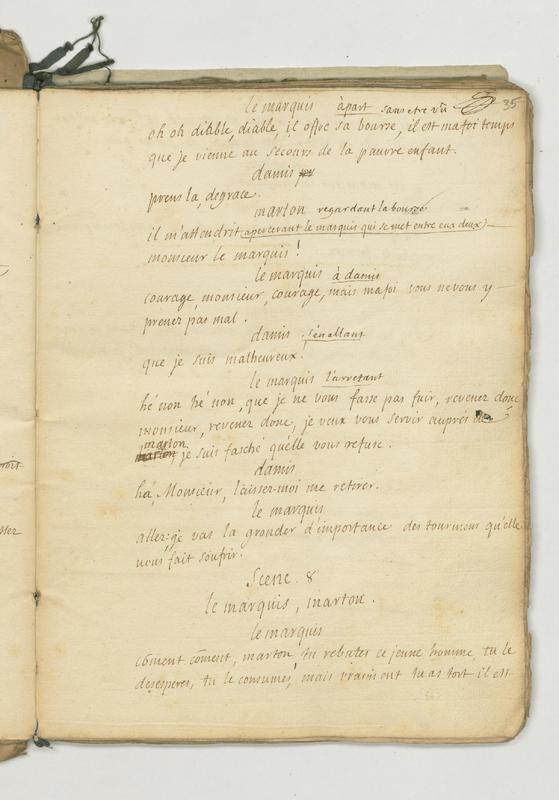 35
le marquis à part sans etre vû
oh oh diable, diable, il offre sa bourse, il est ma foi temps
que je vienne au secours de la pauvre enfant.
damis
prens la, de grace.
marton regardant la bourse
il m'attendrit (apercevant le marquis qui se met entre eux deux)
monsieur le marquis!
le marquis à damis
courage, monsieur, courage, mais ma foi vous ne vous y
prenez pas mal.
damis s'en allant
que je suis malheureux.
le marquis l'arretant
hé non hé non, que je ne vous fasse pas fuir, revenez donc
monsieur, revenez donc, je veux vous servir auprés de
marton
marton, je suis fasché qu'elle vous refuse.
damis
ha, Monsieur, laissez-moi me retirer.
le marquis
allez, je vas la gronder d'importance des tourmens qu'elle
vous fait soufrir.
Scene. 8
le marquis, marton.
le marquis
coment coment, marton, tu rebutes ce jeune homme, tu le
desesperes, tu le consumes, mais vraiment tu as tort il est